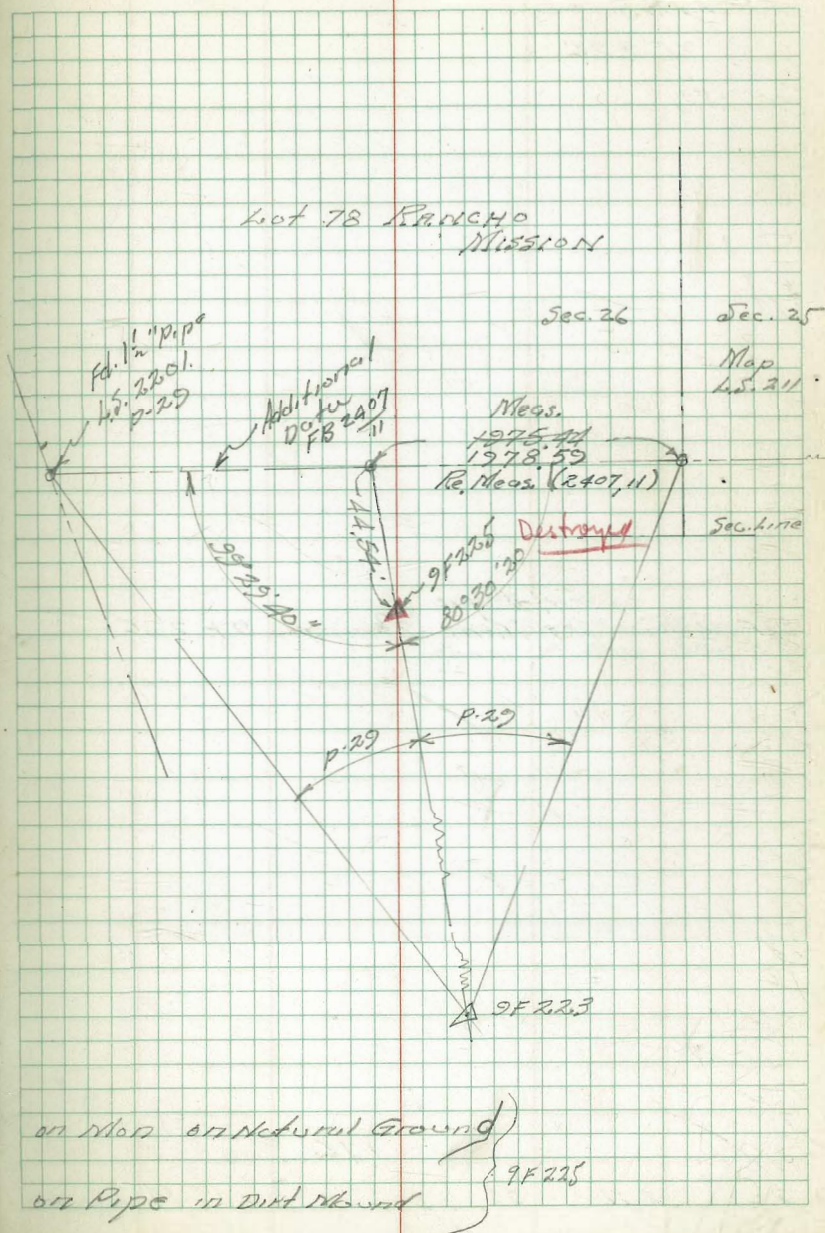 Lot 78 RANCHO
MISSION
Sec. 26
Sec. 25
Map
L.S. 211
Fd. 1½" pipe
L.S. 2201.
P-29
Additional
Data
FB 2407
11
Meas.
1975.44
1978.59
Re. Meas. (2407,11)
Destroyed
Sec. Line
44.54'
9F225
99°29'40"
80°30'20"
P-29
P-29
9F223
on Mon on Natural Ground
9F225
on Pipe in Dirt Mound